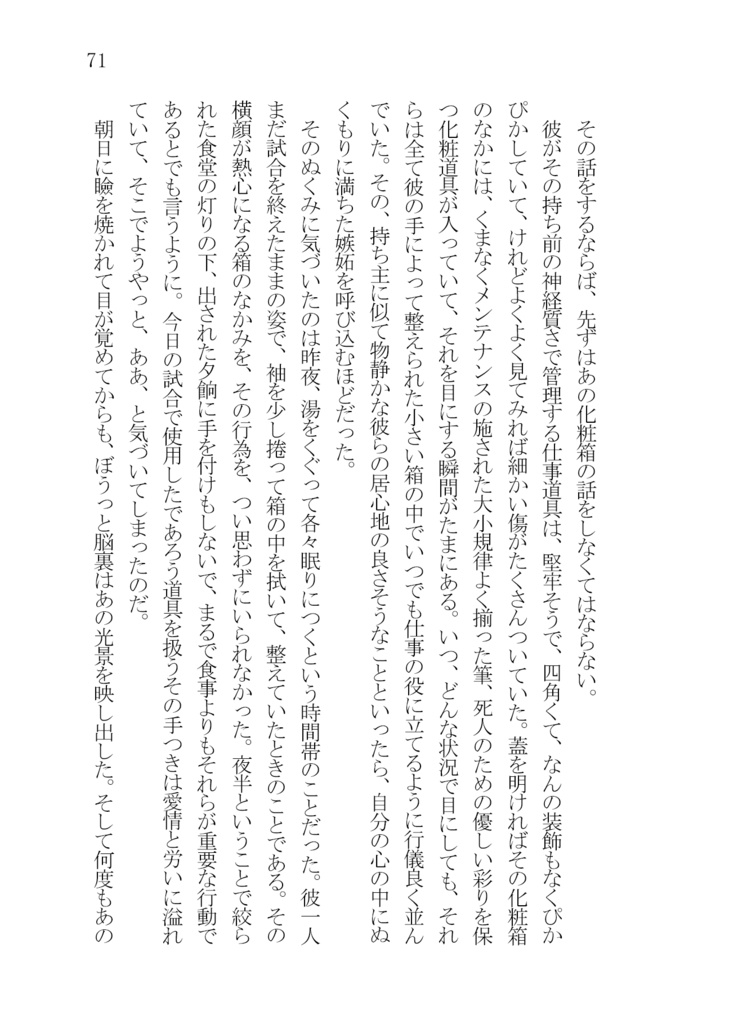 71
その話をするならば、先ずはあの化粧箱の話をしなくてはならない。
彼がその持ち前の神経質さで管理する仕事道具は、堅牢そうで、四角くて、なんの装飾もなくぴか
ぴかしていて、けれどよくよく見てみれば細かい傷がたくさんついていた。蓋を明ければその化粧箱
のなかには、くまなくメンテナンスの施された大小規律よく揃った筆、死人のための優しい彩りを保
つ化粧道具が入っていて、それを目にする瞬間がたまにある。いつ、どんな状況で目にしても、それ
らは全て彼の手によって整えられた小さい箱の中でいつでも仕事の役に立てるように行儀良く並ん
でいた。その、持ち主に似て物静かな彼らの居心地の良さそうなことといったら、自分の心の中にぬ
くもりに満ちた嫉妬を呼び込むほどだった。
そのぬくみに気づいたのは昨夜、湯をくぐって各々眠りにつくという時間帯のことだった。彼一人
まだ試合を終えたままの姿で、袖を少し捲って箱の中を拭いて、整えていたときのことである。その
横顔が熱心になる箱のなかみを、その行為を、つい思わずにいられなかった。夜半ということで絞ら
れた食堂の灯りの下、出された夕餉に手を付けもしないで、まるで食事よりもそれらが重要な行動で
あるとでも言うように。今日の試合で使用したであろう道具を扱うその手つきは愛情と労いに溢れ
ていて、そこでようやっと、ああ、と気づいてしまったのだ。
朝日に瞼を焼かれて目が覚めてからも、ぼうっと脳裏はあの光景を映し出した。そして何度もあの